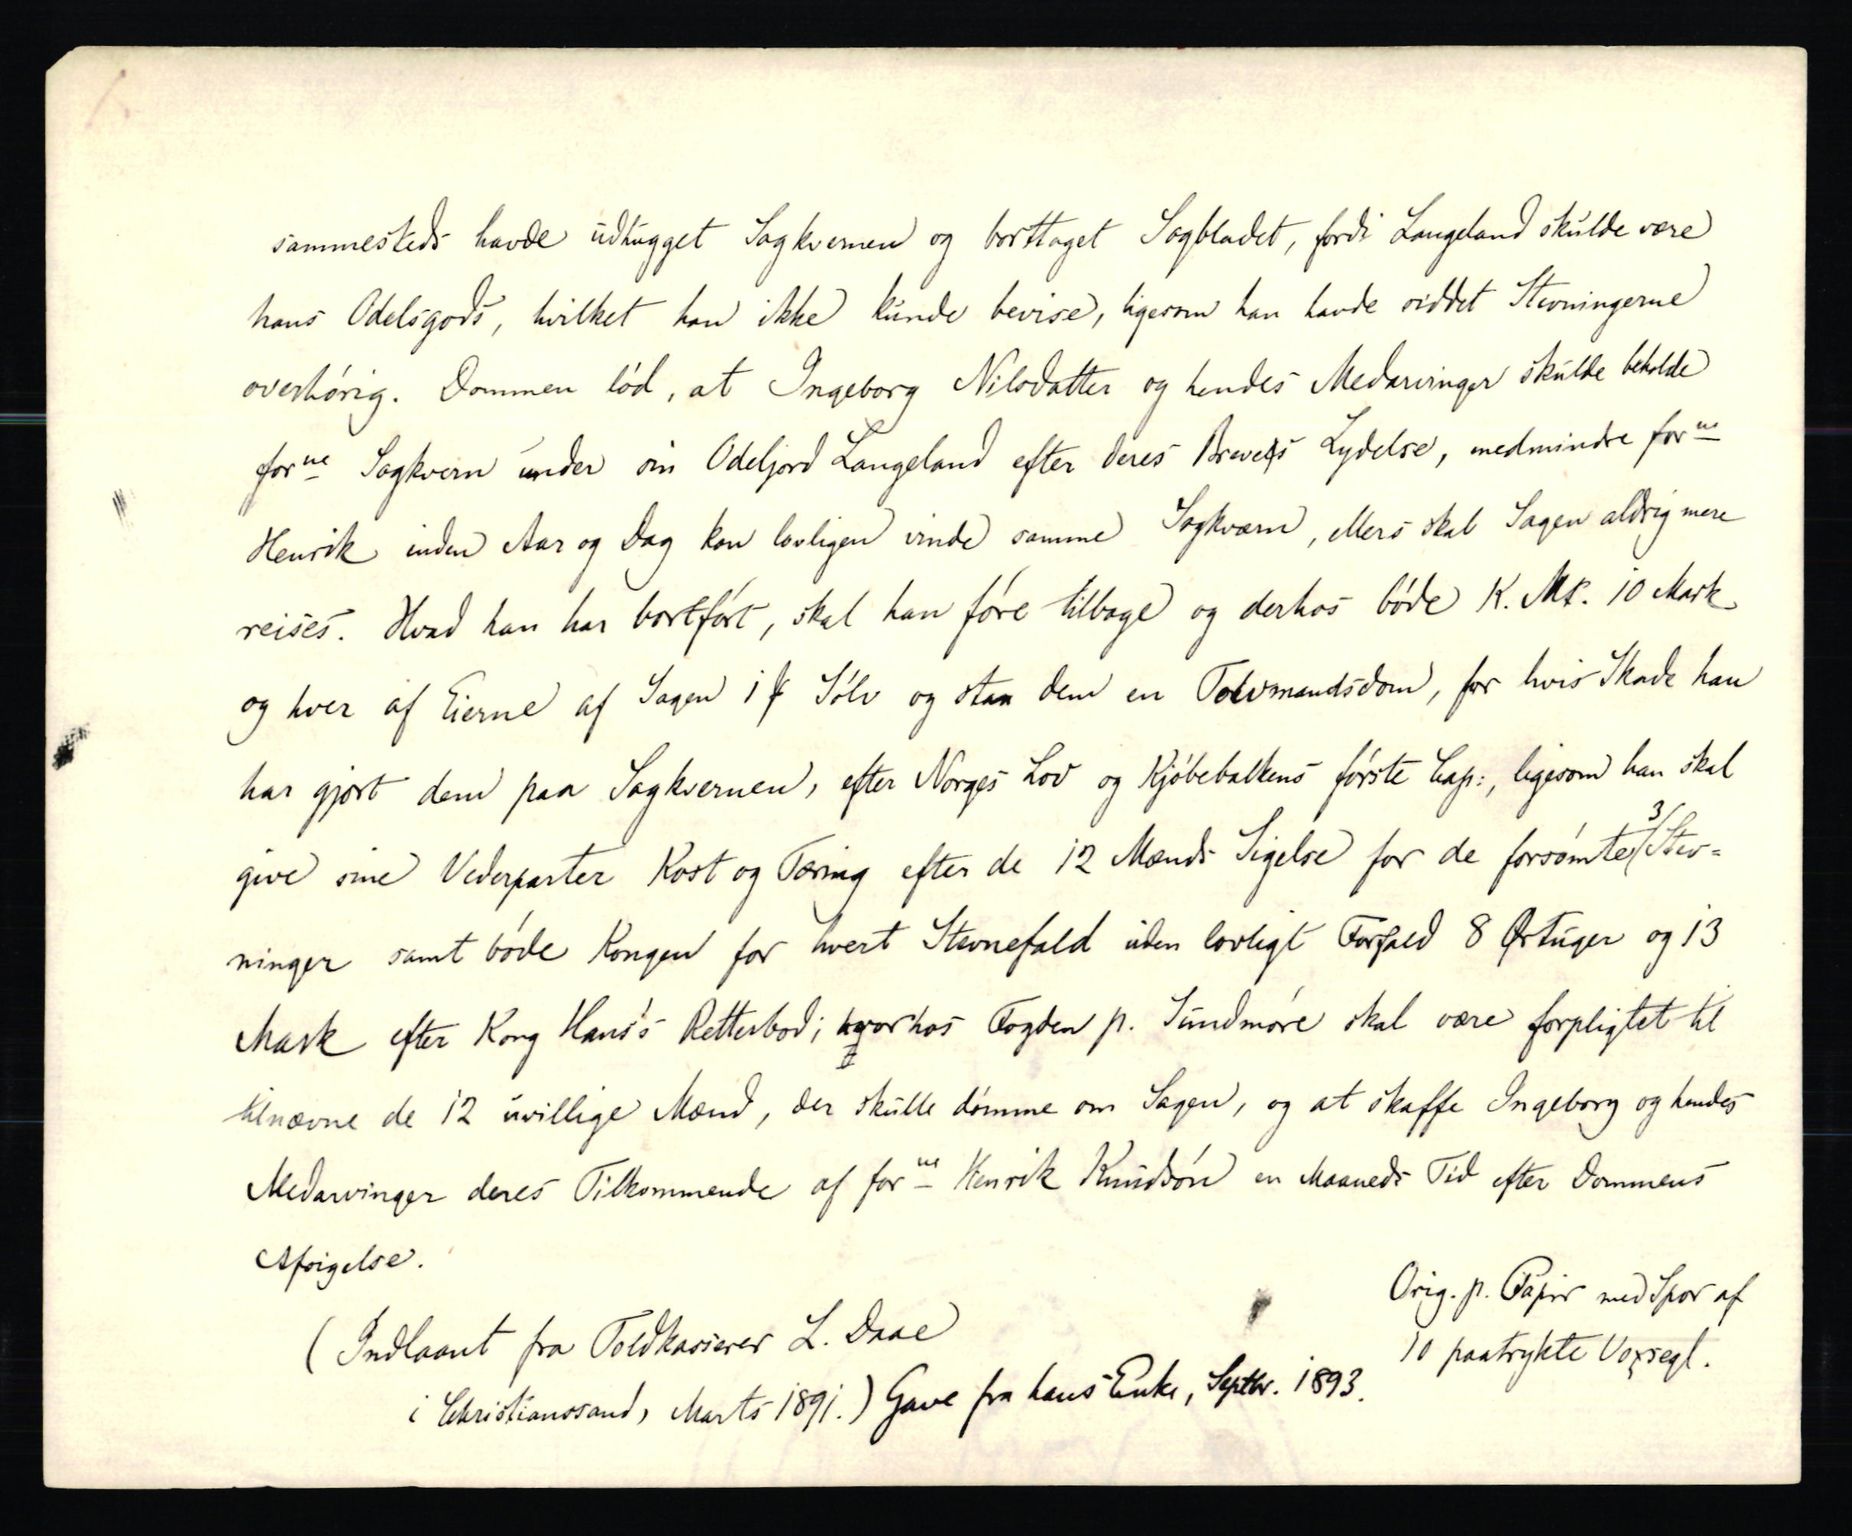 sammesteds havde udhugget Sagkvernen og borttaget Sagbladet, fordi Langeland skulde være
hans Odelsgods, hvilket han ikke kunde bevise, ligesom han havde siddet Stevningerne
overhörig. Dommen löd, at Ingeborg Nilsdatter og hendes Medarvinger skulde beholde
forne Sagkvern under sin Odeljord Langeland efter deres Breves Lydelse, medmindre forne
Henrik inden Aar og Dag kan lovligen vinde samme Sagkværn, ellers skal Sagen aldrig mere
reises. Hvad han har bortfört, skal han före tilbage og derhos böde K. Mt. 10 Mark
og hver af Eierne af Sagen 1 Sölv og staa dem en Tolvmandsdom, for hvis Skade han
har gjort dem paa Sagkvernen, efter Norges Lov og Kjöbebalkens förste Cap:, ligesom han skal
give sine Vederparter Kost og Tæring efter de 12 Mænds Sigelse for de forsömte 3 Stev-
ninger samt böde Kongen for hvert Stevnefald uden lovligt Forfald 8 Ørtuger og 13
Mark efter Kong Hans's Retterbod; hvorhos Fogden p. Sundmöre skal være forpligtet til
tilnævne de 12 uvillige Mænd, der skulle dömme om Sagen, og at skaffe Ingeborg og hendes
Medarvinger deres Tilkommende af forne Henrik Knudsön en Maaneds Tid efter Dommens
Afsigelse.
Orig. p. Papir med Spor af
10 paatrykte Voxsegl.
(Indlaant fra Toldkasserer L. Daae
i Christianssand, Marts 1891.) Gave fra hans Enke, Septbr. 1893.